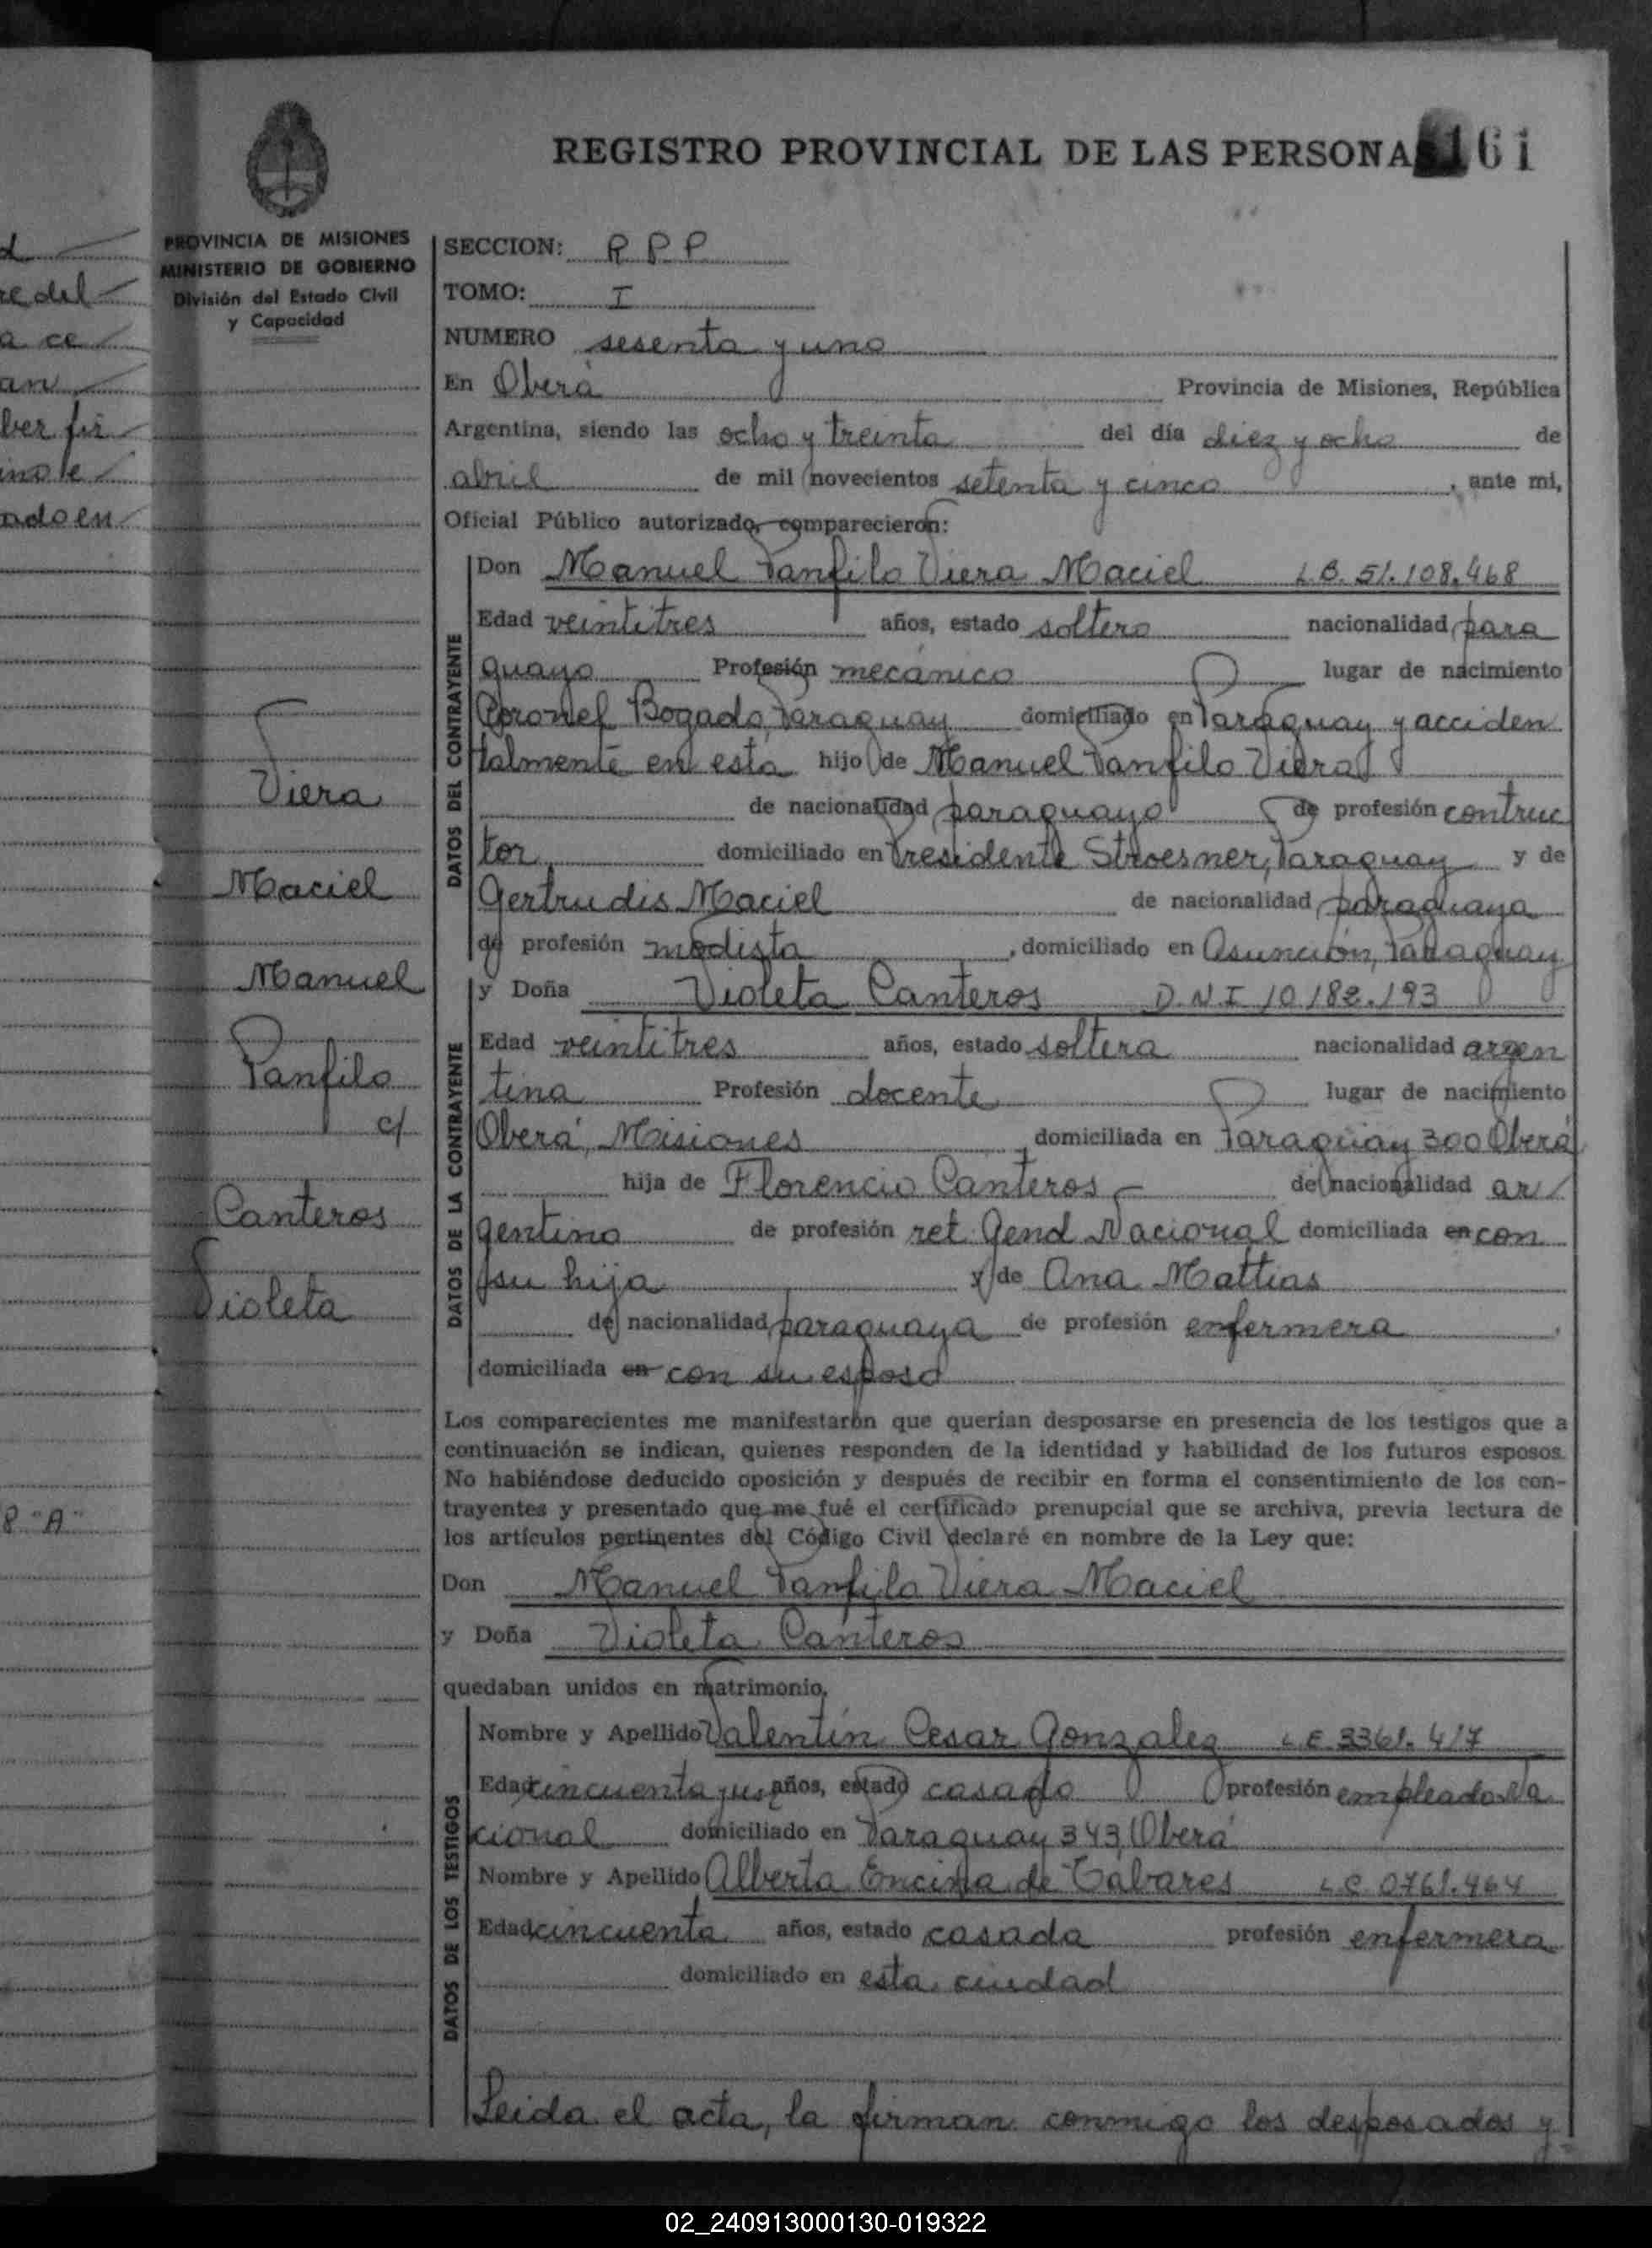 REGISTRO PROVINCIAL DE LAS PERSONA 161
PROVINCIA DE MISIONES
MINISTERIO DE GOBIERNO
División del Estado Civil
y Capacidad
Viera
Maciel
Manuel
Panfilo
c/
Canteros
Violeta
SECCION: R P P
TOMO: I
NUMERO sesenta y uno
En Oberá Provincia de Misiones, República
Argentina, siendo las ocho y treinta del día diez y ocho de
abril de mil novecientos setenta y cinco, ante mi,
Oficial Público autorizado, comparecieron:
DATOS DEL CONTRAYENTE
Don Manuel Panfilo Viera Maciel L.B. 51.108.468
Edad veintitres años, estado soltero nacionalidad para
guayo Profesión mecánico lugar de nacimiento
Coronel Bogado, Paraguay domiciliado en Paraguay y acciden
talmente en esta hijo de Manuel Panfilo Viera
de nacionalidad paraguayo de profesión contruc
tor domiciliado en Presidente Stroesner, Paraguay y de
Gertrudis Maciel de nacionalidad paraguaya
de profesión modista, domiciliado en Asunción, Paraguay
DATOS DE LA CONTRAYENTE
y Doña Violeta Canteros D.N.I 10.182.193
Edad veintitres años, estado soltera nacionalidad argen
tina Profesión docente lugar de nacimiento
Oberá, Misiones, domiciliada en Paraguay 300 Oberá
hija de Florencio Canteros de nacionalidad ar/
gentino de profesión ret. Gend Nacional domiciliada en con
su hija y de Ana Mattias
de nacionalidad paraguaya de profesión enfermera,
domiciliada en con su esposo
Los comparecientes me manifestarón que querían desposarse en presencia de los testigos que a
continuación se indican, quienes responden de la identidad y habilidad de los futuros esposos.
No habiéndose deducido oposición y después de recibir en forma el consentimiento de los con-
trayentes y presentado que me fué el certificado prenupcial que se archiva, previa lectura de
los artículos pertinentes del Código Civil declaré en nombre de la Ley que:
Don Manuel Panfilo Viera Maciel
y Doña Violeta Canteros
quedaban unidos en matrimonio.
DATOS DE LOS TESTIGOS
Nombre y Apellido Valentín Cesar Gonzalez L.E. 3361.417
Edad cincuenta y años, estado casado profesión empleado Na
cional domiciliado en Paraguay 343, Oberá
Nombre y Apellido Alberta Encina de Tabares L.C. 0761.464
Edad cincuenta años, estado casada profesión enfermera
domiciliado en esta ciudad
Leida el acta, la firman conmigo los desposados y
02_240913000130-019322